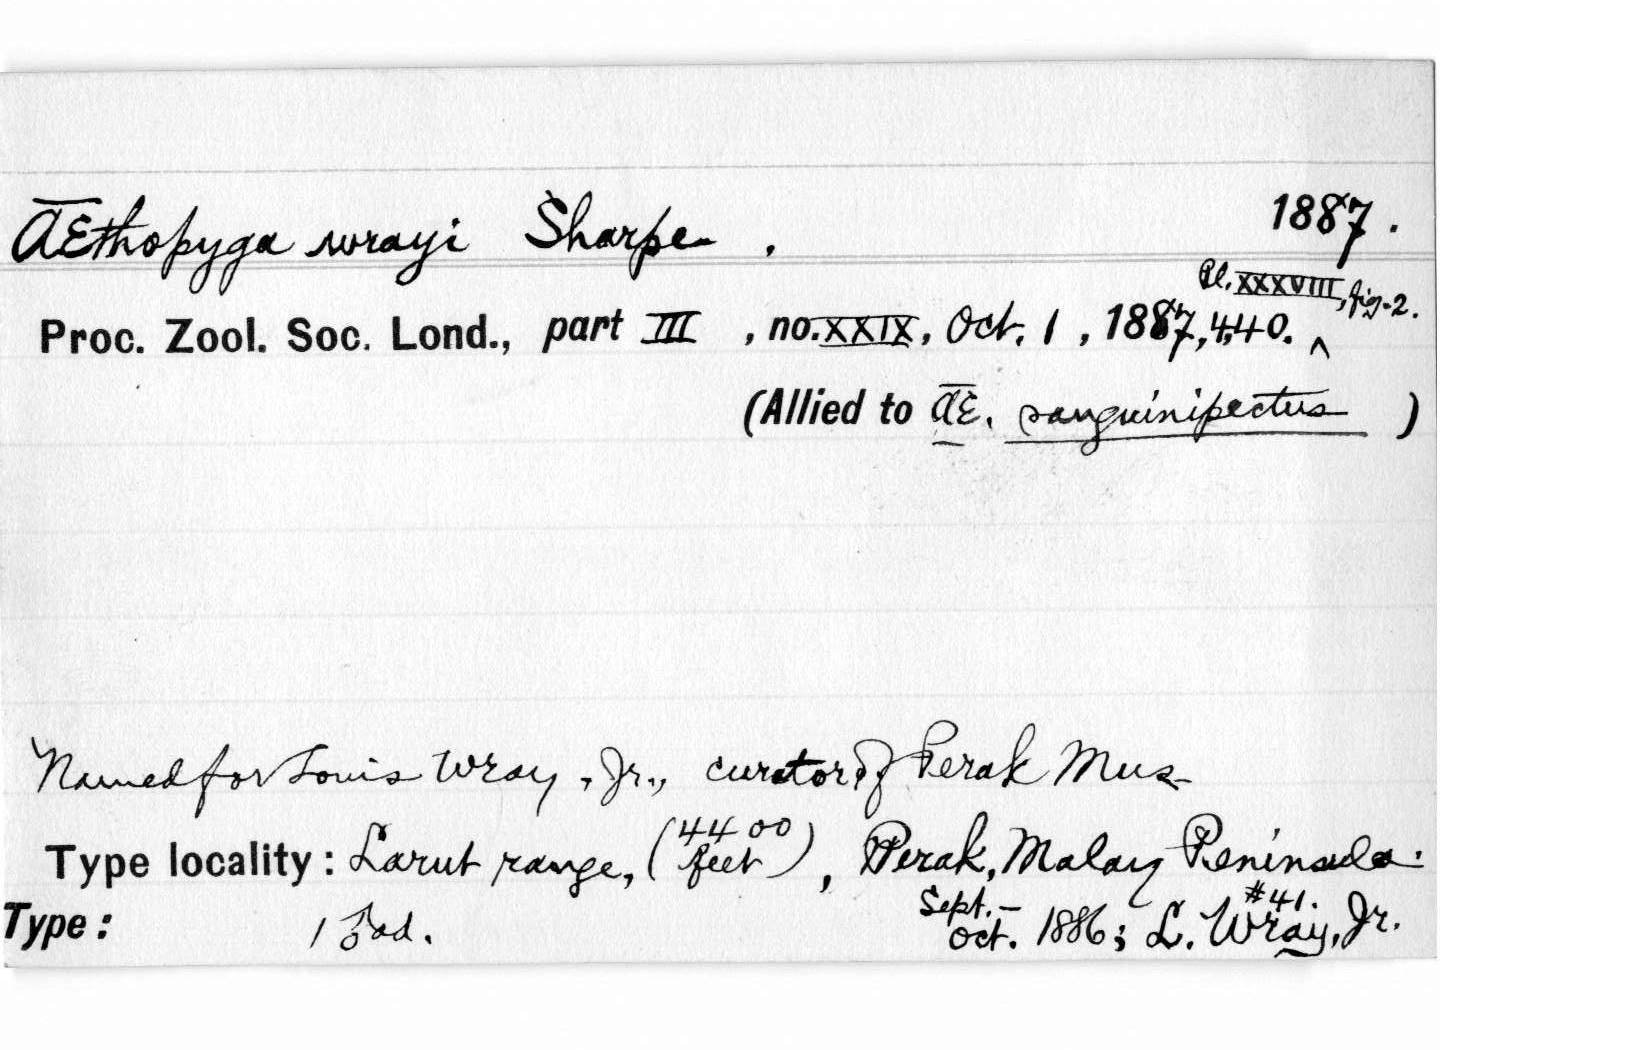 Æthopyga wrayi Sharpe. 1887.
Pl. XXXVIII, fig. 2.
Proc. Zool. Soc. Lond., part III, no. XXIX, Oct. 1, 1887, 440. ^
(Allied to Æ. sanguinipectus)
Named for Louis Wray, Jr., curator of Perak Mus.
Type locality: Larut range, (4400 feet), Perak, Malay Peninsula.
Sept.– #41.
Type: 1 ♂ ad. Oct. 1886; L. Wray, Jr.